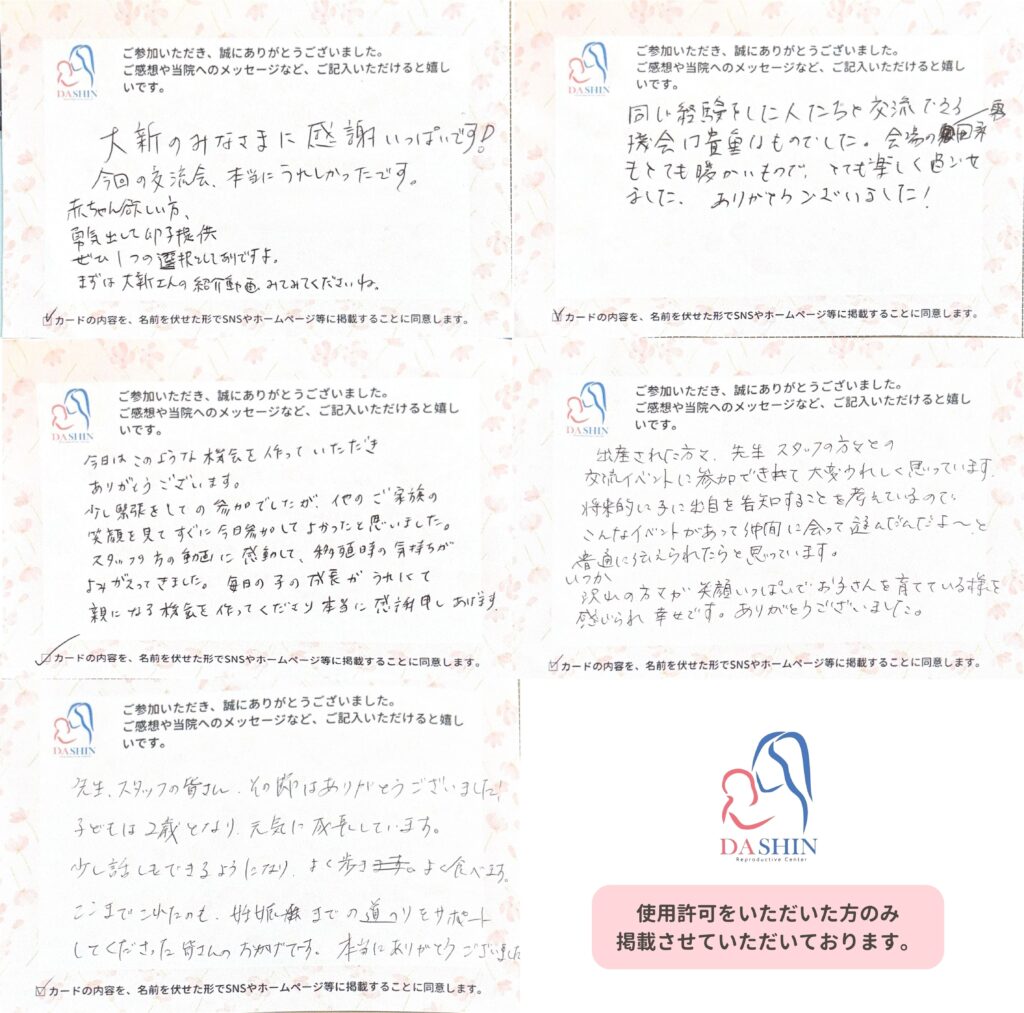 DASHIN
ご参加いただき、誠にありがとうございました。
ご感想や当院へのメッセージなど、ご記入いただけると嬉し
いです。
大新のみなさまに感謝いっぱいです!
今回の交流会、本当にうれしかったです。
赤ちゃん欲しい方、
勇気出して卵子提供
ぜひ1つの選択としてありですよ。
まずは大新さんの紹介動画みてみてくださいね。
カードの内容を、名前を伏せた形でSNSやホームページ等に掲載することに同意します。
DASHIN
ご参加いただき、誠にありがとうございました。
ご感想や当院へのメッセージなど、ご記入いただけると嬉し
いです。
同じ経験をした人たちと交流できる
機会は貴重なものでした。会場の雰囲気
もとても暖かいもので、とても楽しく過ごせ
ました。ありがとうございました!
カードの内容を、名前を伏せた形でSNSやホームページ等に掲載することに同意します。
DASHIN
ご参加いただき、誠にありがとうございました。
ご感想や当院へのメッセージなど、ご記入いただけると嬉し
いです。
今日はこのような機会を作っていただき
ありがとうございます。
少し緊張をしての参加でしたが、他のご家族の
笑顔を見てすぐに今日参加してよかったと思いました。
スタッフ方の動画に感動して、移植時の気持ちが
よみがえってきました。毎日の子の成長がうれしくて
親になる機会を作ってくださり本当に感謝申しあげます。
カードの内容を、名前を伏せた形でSNSやホームページ等に掲載することに同意します。
DASHIN
ご参加いただき、誠にありがとうございました。
ご感想や当院へのメッセージなど、ご記入いただけると嬉し
いです。
出産された方々、先生 スタッフの方々との
交流イベントに参加できて大変うれしく思っています。
将来的に子に出自を告知することを考えているので
こんなイベントがあって仲間に会って遊んだんだよ〜と
普通に伝えられたらと思っています。
いつか
沢山の方々が笑顔いっぱいでお子さんを育てている様を
感じられ幸せです。ありがとうございました。
カードの内容を、名前を伏せた形でSNSやホームページ等に掲載することに同意します。
DASHIN
ご参加いただき、誠にありがとうございました。
ご感想や当院へのメッセージなど、ご記入いただけると嬉し
いです。
先生、スタッフの皆さん、その節はありがとうございました!
子どもは2歳となり、元気に成長しています。
少し話しもできるようになり、よく歩きよく食べます。
ここまでこれたのも、妊娠までの道のりをサポート
してくださった皆さんのおかげです。本当にありがとうございました
カードの内容を、名前を伏せた形でSNSやホームページ等に掲載することに同意します。
DASHIN
Reproductive Center
使用許可をいただいた方のみ
掲載させていただいております。